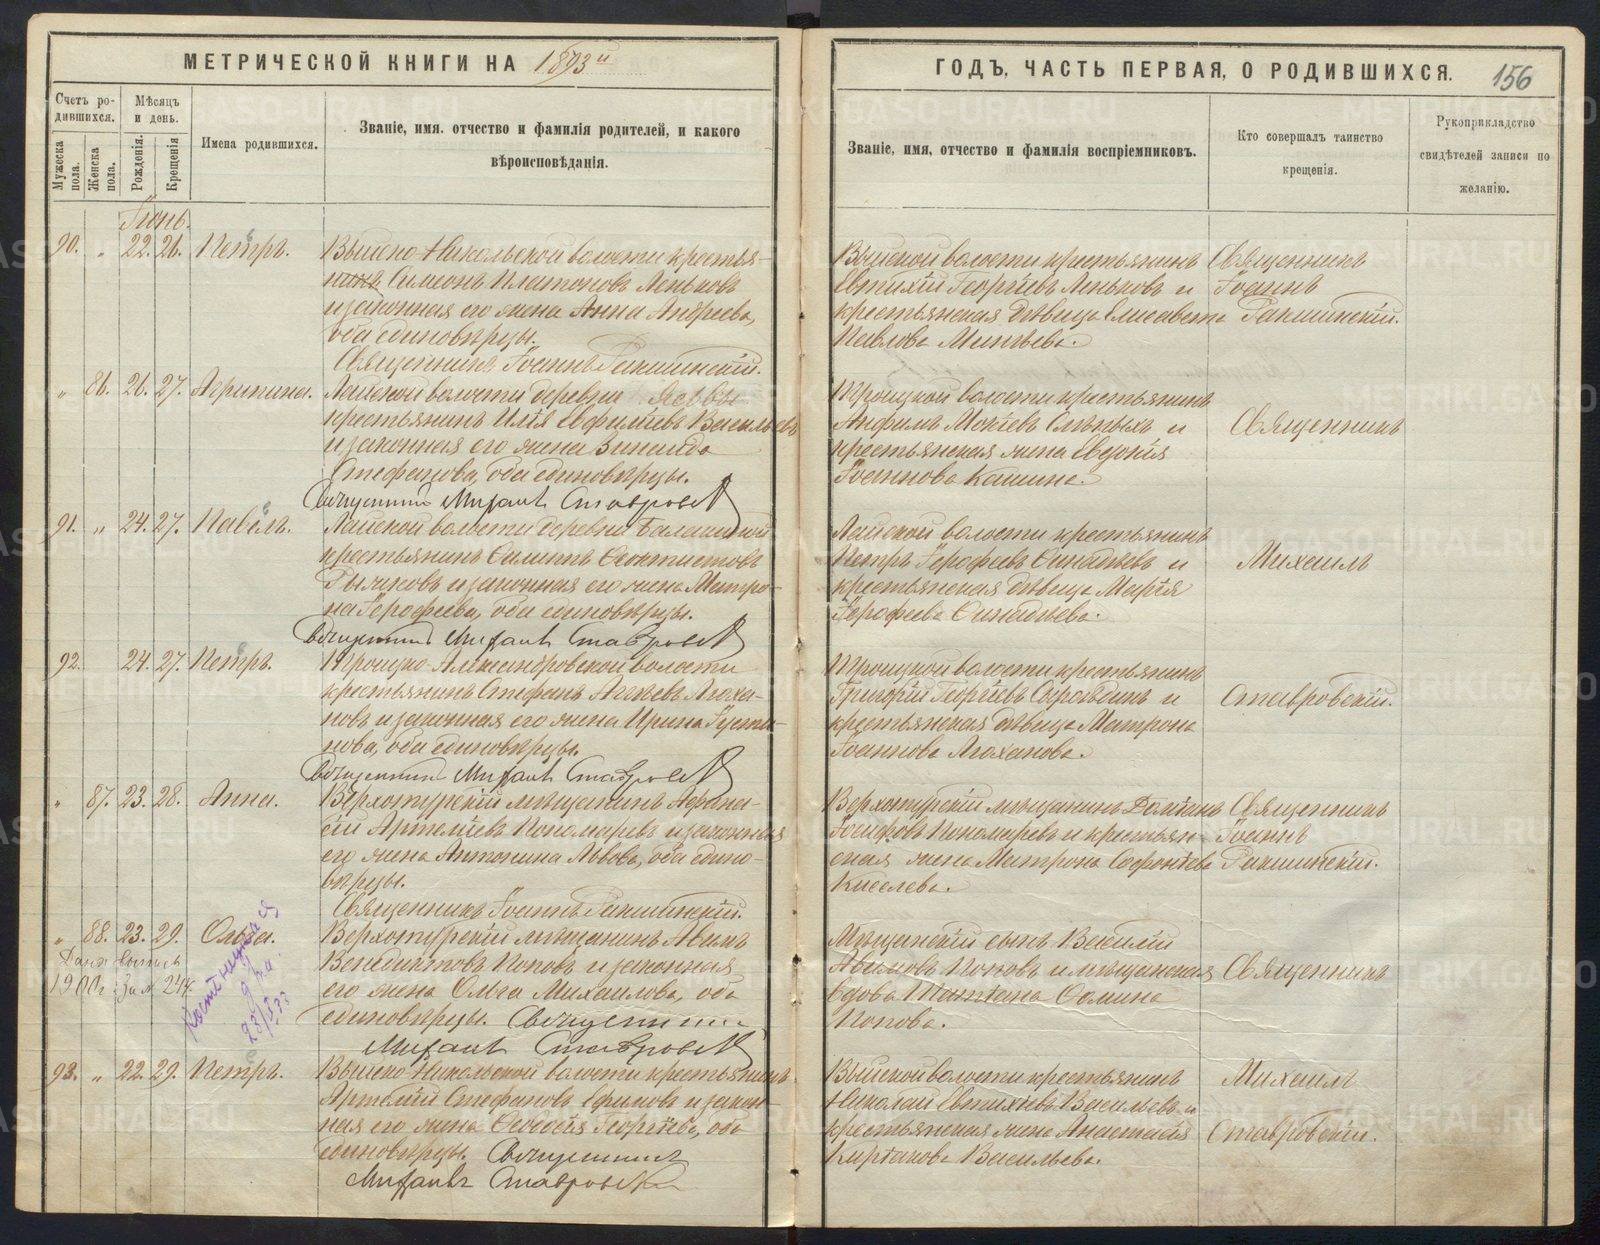 МЕТРИЧЕСКОЙ КНИГИ НА 1893й
Счетъ родившихся.
Мѣсяцъ и день.
Имена родившихся.
Званіе, имя. отчество и фамилія родителей, и какого
вѣроисповѣданія.
Мужеска пола.
Женска пола.
Рожденія.
Крещенія
Іюнь.
90. " 22. 26. Петръ.
Выйско-Никольской волости крестья-
нинъ Симеонъ Платоновъ Пеньковъ
и законная его жена Анна Андреева,
оба единовѣрцы.
Священникъ Іоаннъ
" 86. 26. 27. Агрипина.
Лайской волости деревни
крестьянинъ Илія Евфиміевъ Васильевъ
и законная его жена Зинаида
Стефанова, оба единовѣрцы.
Священникъ Михаилъ Ставровскій
91. " 24. 27. Павелъ.
Лайской волости деревни Балакиной
крестьянинъ Филиппъ Феоктистовъ
и законная его жена Матро-
на Іерофеева, оба единовѣрцы.
Священникъ Михаилъ Ставровскій
92. 24. 27. Петръ.
Троицко-Александровской волости
крестьянинъ Стефанъ
и законная его жена Ирина Густи-
нова, оба единовѣрцы.
Священникъ Михаилъ Ставровскій
" 87. 23. 28. Анна.
Верхотурскій мѣщанинъ Афана-
сій Артеміевъ Пономаревъ и законная
его жена Антонина Львова, оба едино-
вѣрцы.
Священникъ Іоаннъ
" 88. 23. 29. Ольга.
Верхотурскій мѣщанинъ Авимъ
Венедиктовъ Поповъ и законная
его жена Ольга Михаилова, оба
единовѣрцы. Священникъ
Михаилъ Ставровскій
1900г. За № 244.
93. " 22. 29. Петръ.
Выйско-Никольской волости крестьянинъ
Артемій Стефановъ Ефимовъ и закон-
ная его жена Феодосія Георгіева, оба
единовѣрцы. Священникъ
Михаилъ Ставровскій
ГОДЪ, ЧАСТЬ ПЕРВАЯ, О РОДИВШИХСЯ. 156
Званіе, имя, отчество и фамилія воспріемниковъ.
Кто совершалъ таинство
крещенія.
Рукоприкладство
свидѣтелей записи по
желанію.
Выйской волости крестьянинъ
Евтихій Георгіевъ Пеньковъ и
крестьянская дѣвица Елисавета
Павлова Минѣева.
Священникъ
Іоаннъ
Троицкой волости крестьянинъ
Анфимъ Мокіевъ Слѣпыхъ и
крестьянская жена Евдокія
Іоаннова Кашина.
Священникъ
Лайской волости крестьянинъ
Петръ Іерофеевъ и
крестьянская дѣвица Марія
Іерофеева
Михаилъ
Троицкой волости крестьянинъ
Григорій Георгіевъ и
крестьянская дѣвица Матрона
Іоаннова
Ставровскій.
Верхотурскій мѣщанинъ Даміанъ
Іосифовъ Пономаревъ и крестьян-
ская жена Матрона Софоніева
Киселева.
Священникъ
Іоаннъ
Мѣщанскій сынъ Василій
Авимовъ Поповъ и мѣщанская
вдова Татіана Фомина
Попова.
Священникъ
Выйской волости крестьянинъ
Николай Евтихіевъ Васильевъ и
крестьянская жена Анастасія
Васильева.
Михаилъ
Ставровскій.
METRIKI.GASO-URAL.RU